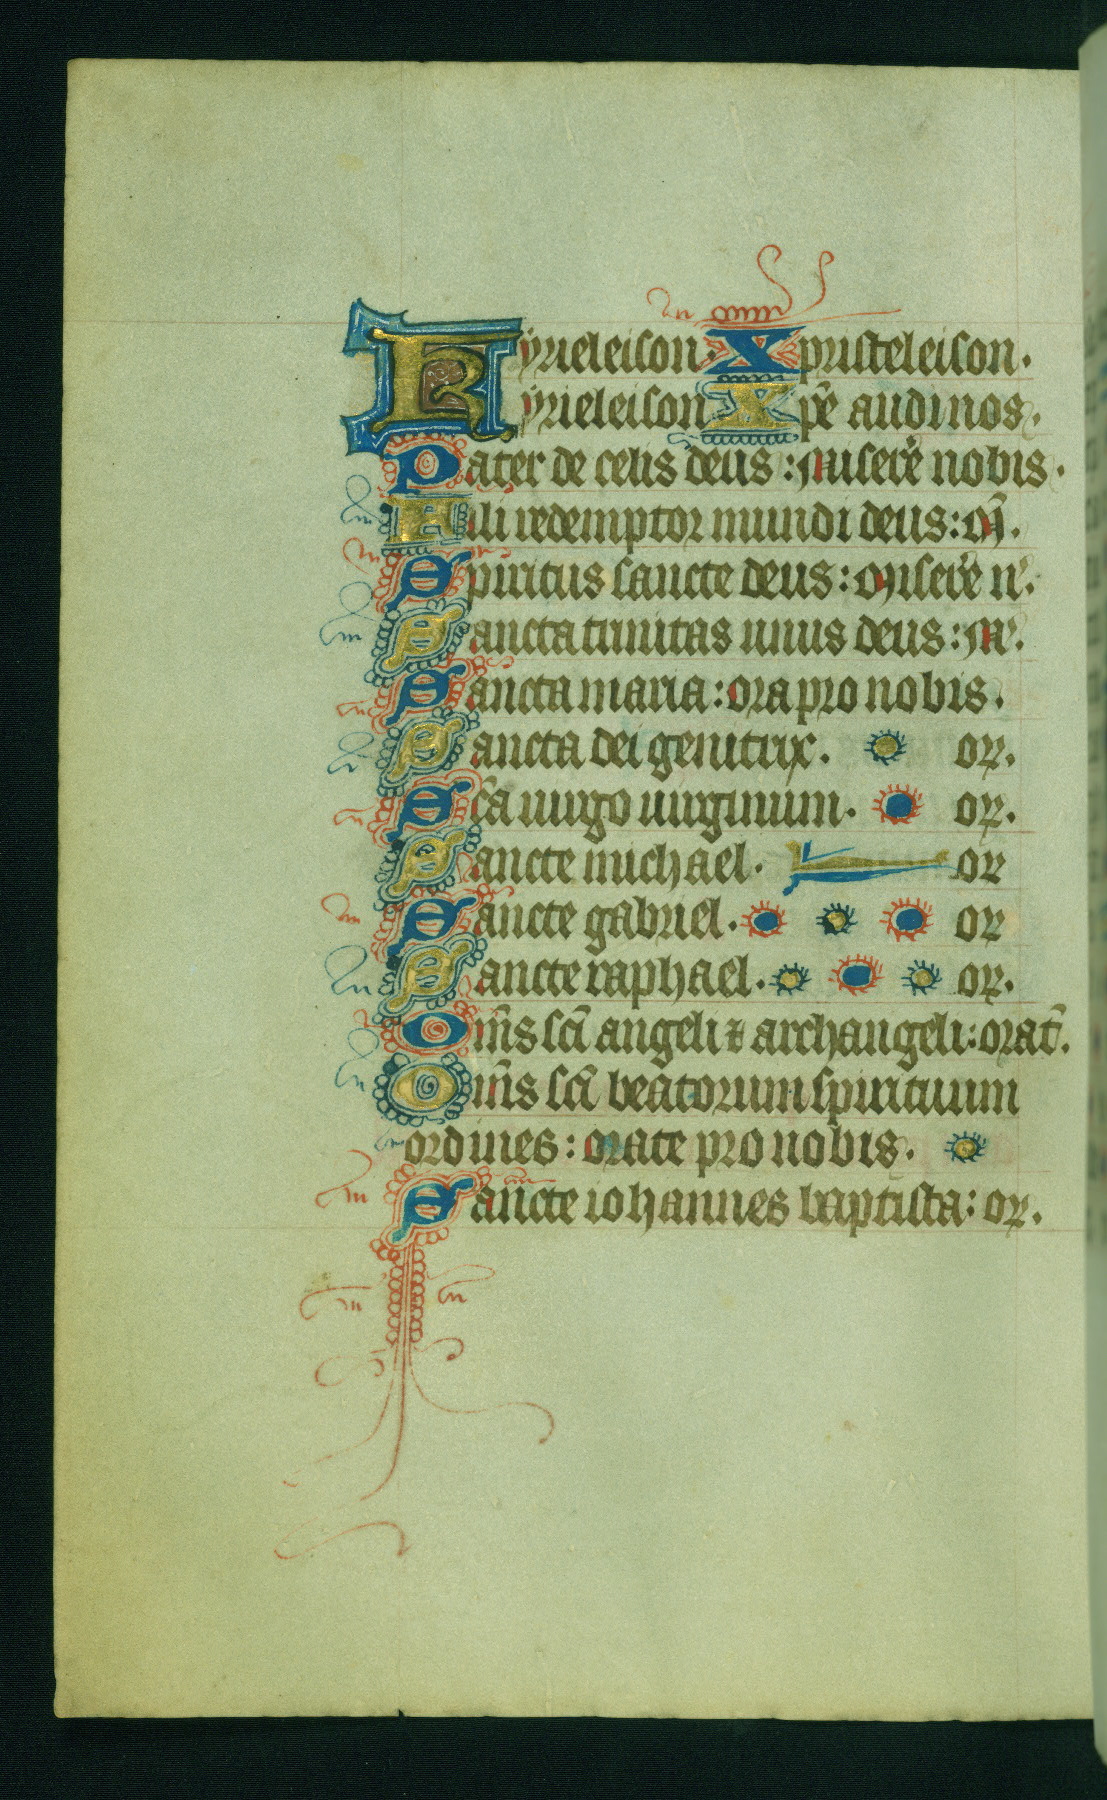 Kyrieleison. Xpristeleison.
Kyrieleison Xpē audi nos.
Pater de celis deus: Miserē nobis.
Fili redemptor mundi deus: M̄.
Spiritus sancte deus: Miserē n̄.
Sancta trinitas unus deus: M̄.
Sancta maria: ora pro nobis.
Sancta dei genitrix. or.
Sc̄a uirgo uirginum. or.
Sancte michael. or
Sancte gabriel. or
Sancte raphael. or.
Om̄s sc̄i angeli ⁊ archangeli: orat̄.
Om̄s sc̄i beatorum spirituum
ordines: orate pro nobis.
Sancte iohannes baptista: or.